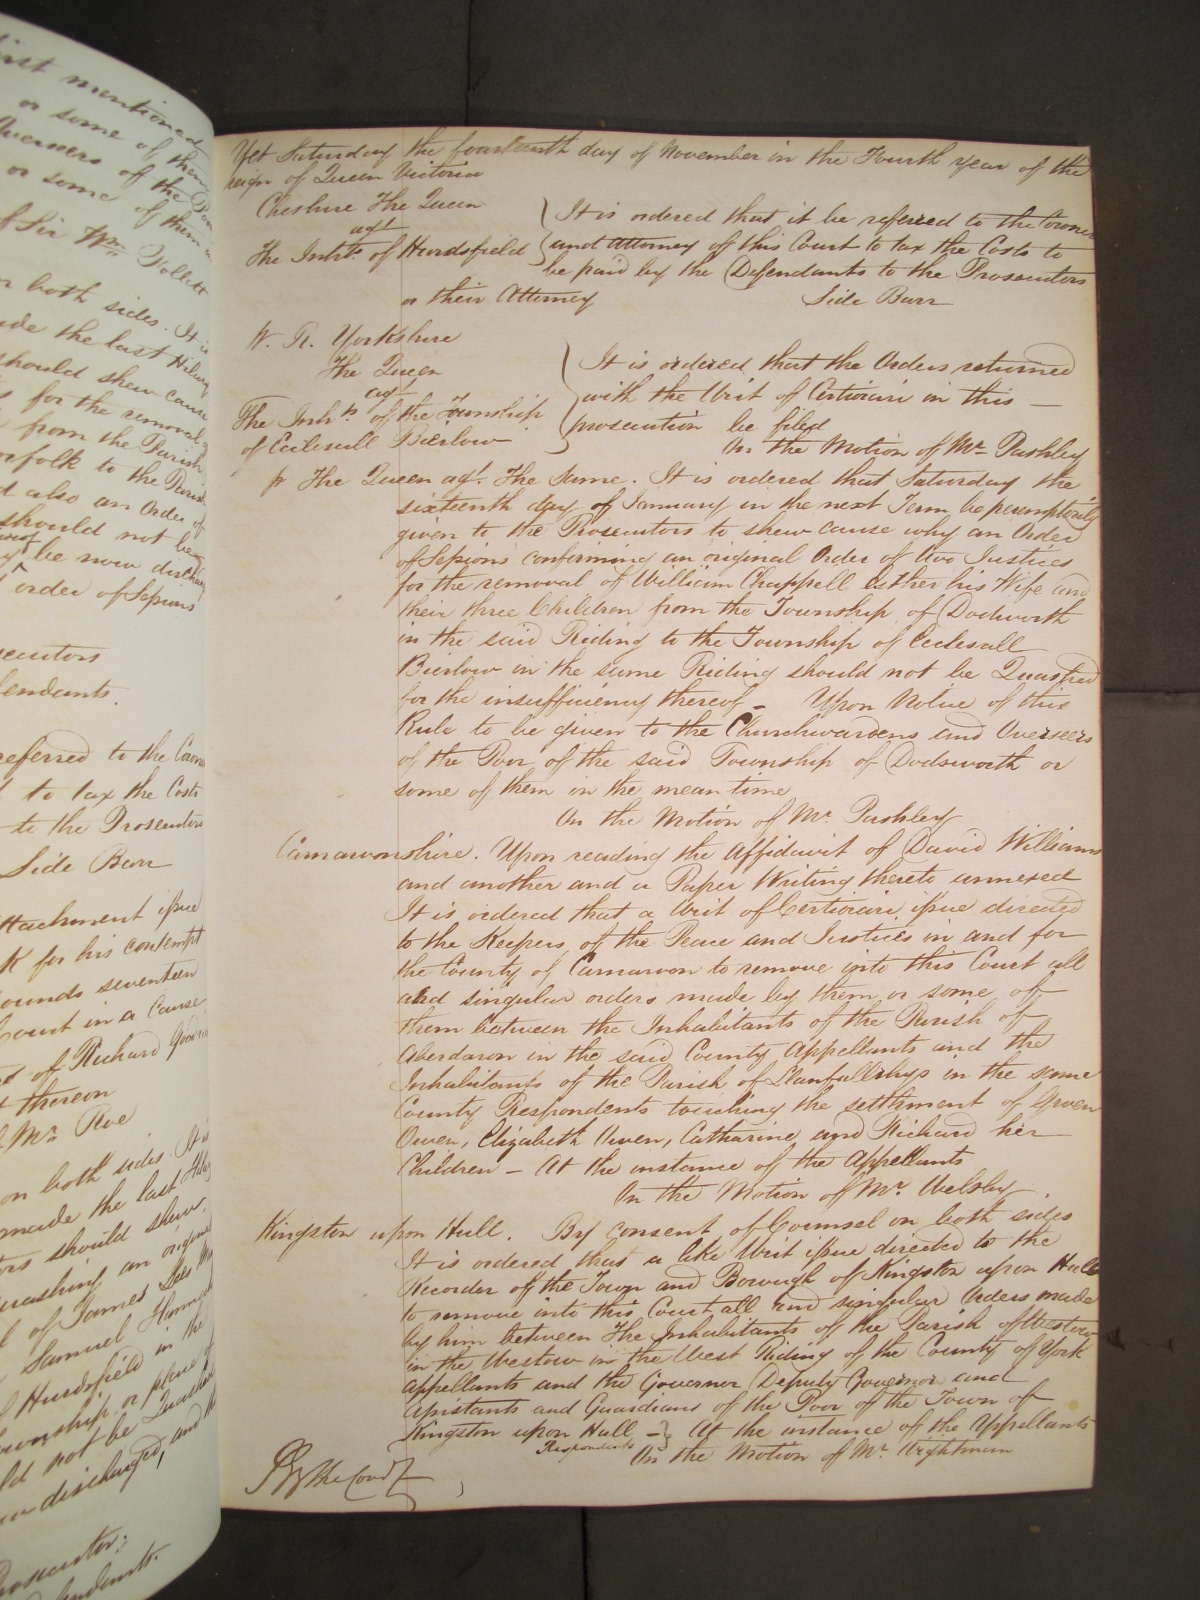 first mentioned
or some of them
Overseers of the Poor
or some of them in
of Sir Wm. Follett
on both sides. It is
made the last Hilary
should shew cause
for the removal of
from the Parish
Norfolk to the Parish
and also an Order of
should not be
be now discharged
order of Sessions
Prosecutors
Defendants.
referred to the Coroner
to tax the Costs
to the Prosecutors
Side Barr
Attachment issue
for his contempt
pounds seventeen
Court in a Cause
of Richard
thereon
Mr. Roe
on both sides It is
made the last Hilary
should shew
quashing an original
of James Lees
Samuel Hannah
of Hurdsfield in the
Township or place of
should not be Quashed
now discharged, and the
Prosecutor:
Defendants.
Yet Saturday the fourteenth day of November in the Fourth year of the
reign of Queen Victoria
Cheshire The Queen
agt.
The Inhts. of Hurdsfield
It is ordered that it be referred to the Coroner
and Attorney of this Court to tax the Costs to
be paid by the Defendants to the Prosecutors
or their Attorney Side Barr
W. R. Yorkshire
The Queen
agt
The Inhts. of the Township
of Ecclesall Bierlow
It is ordered that the Orders returned
with the Writ of Certiorari in this —
prosecution be filed
On the Motion of Mr. Pashley
p The Queen agt. The Same. It is ordered that Saturday the
sixteenth day of January in the next Term be peremptorily
given to the Prosecutors to shew cause why an Order
of Sessions confirming an original Order of two Justices
for the removal of William Chappell Esther his Wife and
their three Children from the Township of Dodworth
in the said Riding to the Township of Ecclesall
Bierlow in the same Riding should not be Quashed
for the insufficiency thereof – Upon Notice of this
Rule to be given to the Churchwardens and Overseers
of the Poor of the said Township of Dodsworth or
some of them in the mean time
On the Motion of Mr. Pashley
Carnarvonshire. Upon reading the Affidavit of David Williams
and another and a Paper Writing thereto annexed
It is ordered that a Writ of Certiorari issue directed
to the Keepers of the Peace and Justices in and for
the County of Carnarvon to remove into this Court all
and singular orders made by them or some of
them between the Inhabitants of the Parish of
Aberdaron in the said County Appellants and the
Inhabitants of the Parish of Llanfallrhys in the same
County Respondents touching the settlement of Gwen
Owen, Elizabeth Owen, Catharine and Richard her
Children – At the instance of the Appellants
On the Motion of Mr. Welsby.
Kingston upon Hull. By consent of Counsel on both sides
It is ordered that a like Writ issue directed to the
Recorder of the Town and Borough of Kingston upon Hull
to remove into this Court all and singular Orders made
by him between The Inhabitants of the Parish of Westow
in the Westow in the West Riding of the County of York
Appellants and the Governor Deputy Governor and
Assistants and Guardians of the Poor of the Town of
Kingston upon Hull – At the instance of the Appellants
Respondents
On the Motion of Mr. Wightman
By the Court